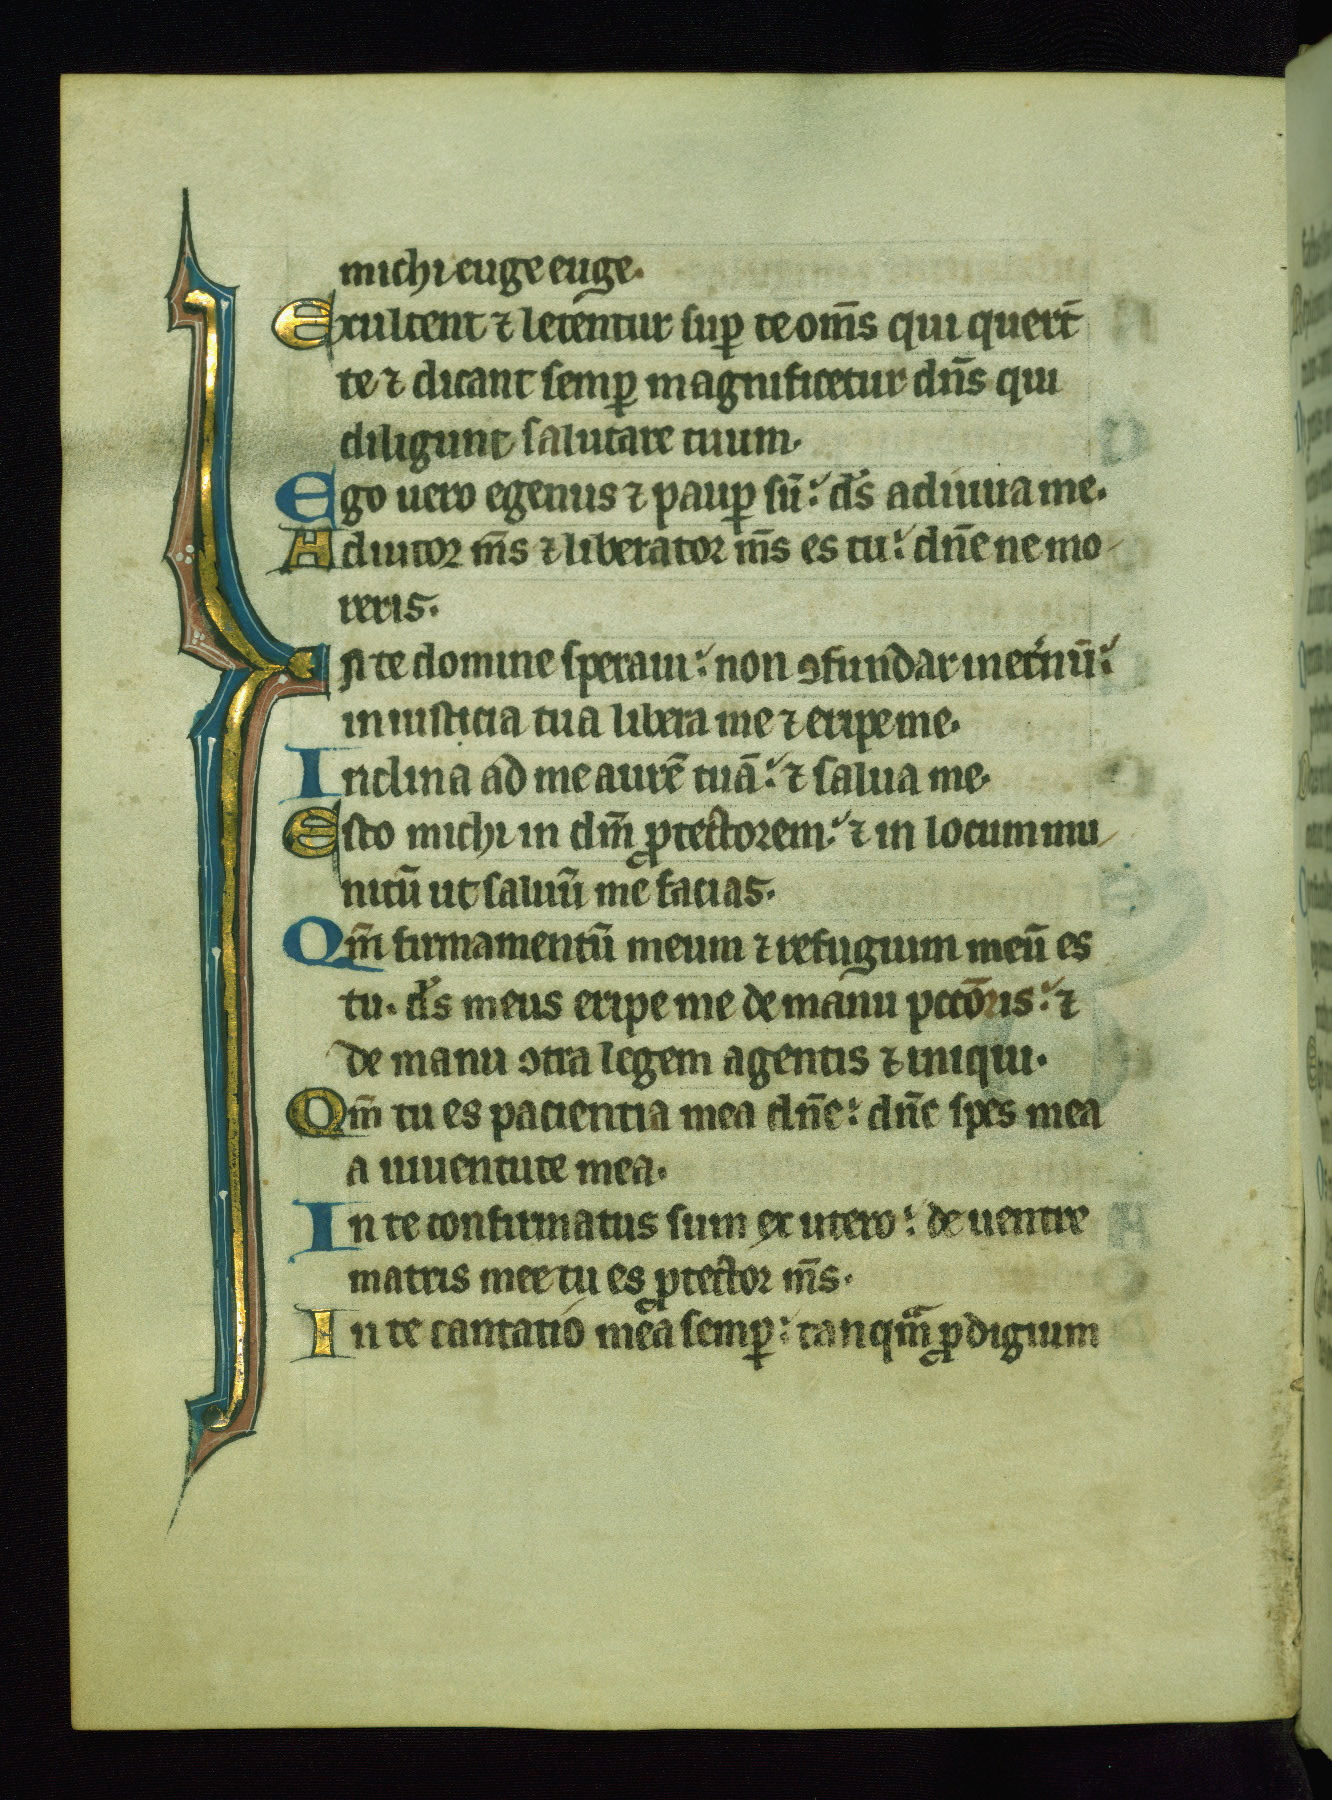 michi euge euge.
Exultent ⁊ letentur suꝑ te om̅s qui quer̅t
te ⁊ dicant semꝑ magnificetur dn̅s qui
diligunt salutare tuum.
Ego uero egenus ⁊ pauꝑ su̅: ds̅ adiuua me.
Adiutor m̅s ⁊ liberator m̅s es tu: dn̅e ne mo
reris.
In te domine speraui: non ꝯfundar inet̉nu̅:
in iusticia tua libera me ⁊ eripe me.
Inclina ad me aure̅ tua̅: ⁊ salua me.
Esto michi in dm̅ ꝓtectorem: ⁊ in locum mu
nitu̅ ut saluu̅ me facias.
Qm̅ firmamentu̅ meum ⁊ refugium meu̅ es
tu. ds̅ meus eripe me de manu pcco̅ris: ⁊
de manu ꝯtra legem agentis ⁊ iniqui.
Qm̅ tu es paciencia mea dn̅e: dn̅e spes mea
a iuuentute mea.
In te confirmatus sum ex utero: de uentre
matris mee tu es ꝓtector m̅s.
In te cantatio mea semꝑ: tanqᷓm ꝓdigium